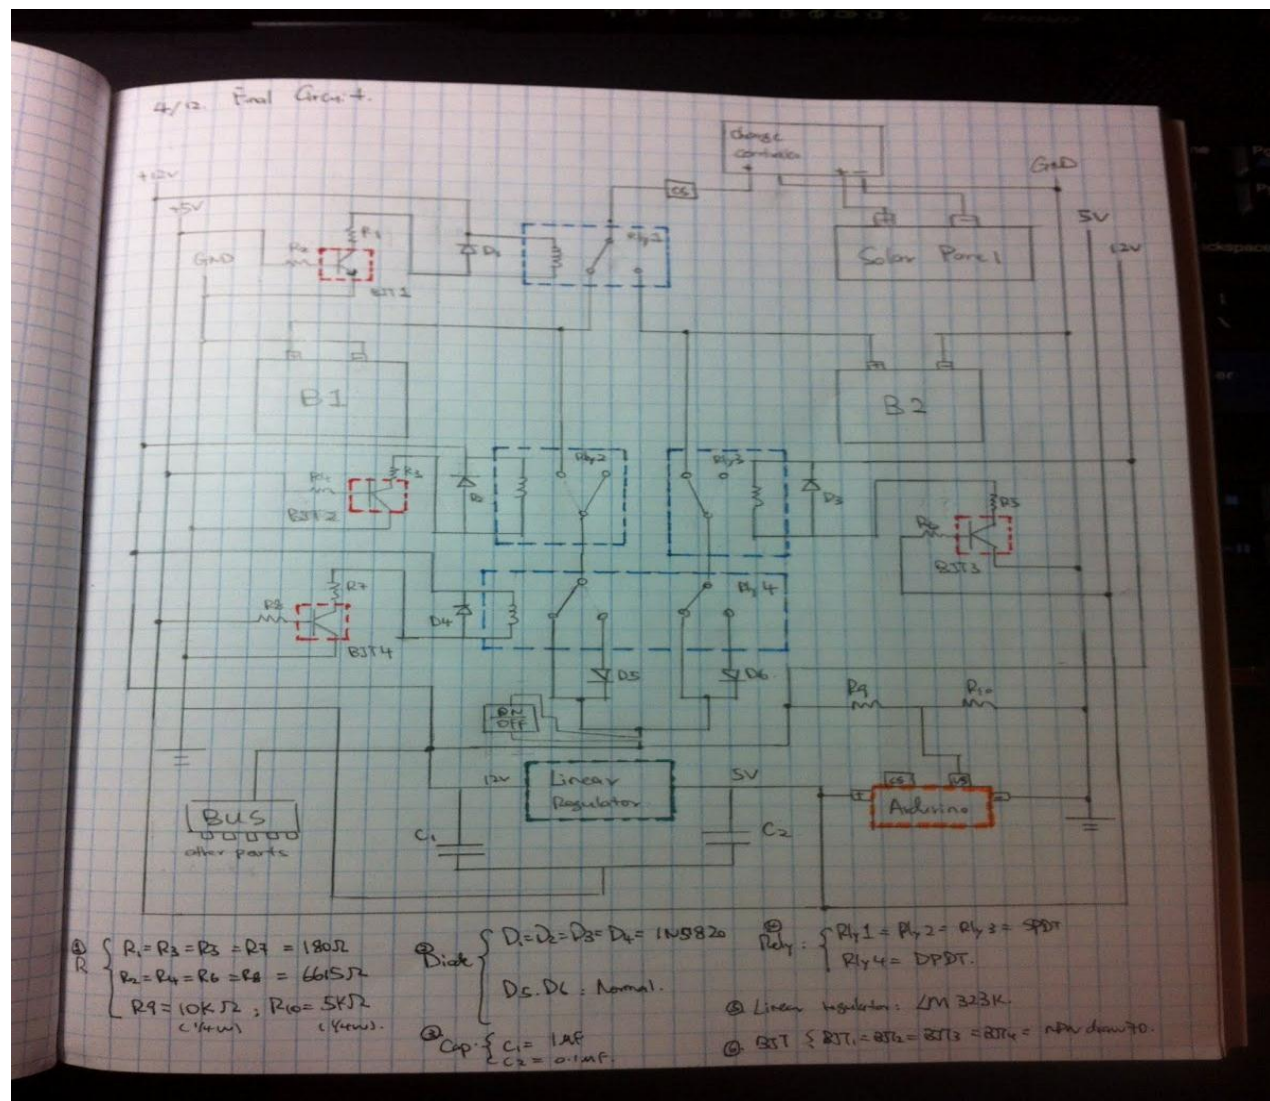 4/12. Final Circuit.
charge
controller
+12V
+5V
GND
CS
GND
5V
12V
R1
R2
BJT1
D1
Rly1
Solar Panel
B1
B2
R3
R4
BJT2
D2
Rly2
Rly3
D3
R5
R6
BJT3
R7
R8
BJT4
D4
Rly4
D5
D6
ON
OFF
R9
R10
12V
Linear
Regulator
5V
CS
VS
Arduino
BUS
other parts
C1
C2
① R { R1 = R3 = R5 = R7 = 180Ω
R2 = R4 = R6 = R8 = 6615Ω
R9 = 10KΩ ; R10 = 5KΩ
(1/4w) (1/4w).
② Diode { D1=D2=D3=D4= 1N5820
D5.D6 : Normal.
③ Cap. { C1 = 1μF
C2 = 0.1μF.
④ Relay : { Rly1 = Rly2 = Rly3 = SPDT
Rly4 = DPDT.
⑤ Linear regulator: LM 323K.
⑥ BJT { BJT1 = BJT2 = BJT3 = BJT4 = NPN